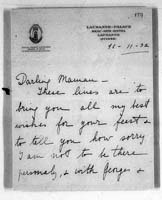 LAUSANNE-PALACE
BEAU-SITE HOTEL
LAUSANNE
12-11-32
Darling Maman –
These lines are to
bring you all my best
wishes for your feast &
to tell you how sorry
I am not to be there
personaly, & with Georges &